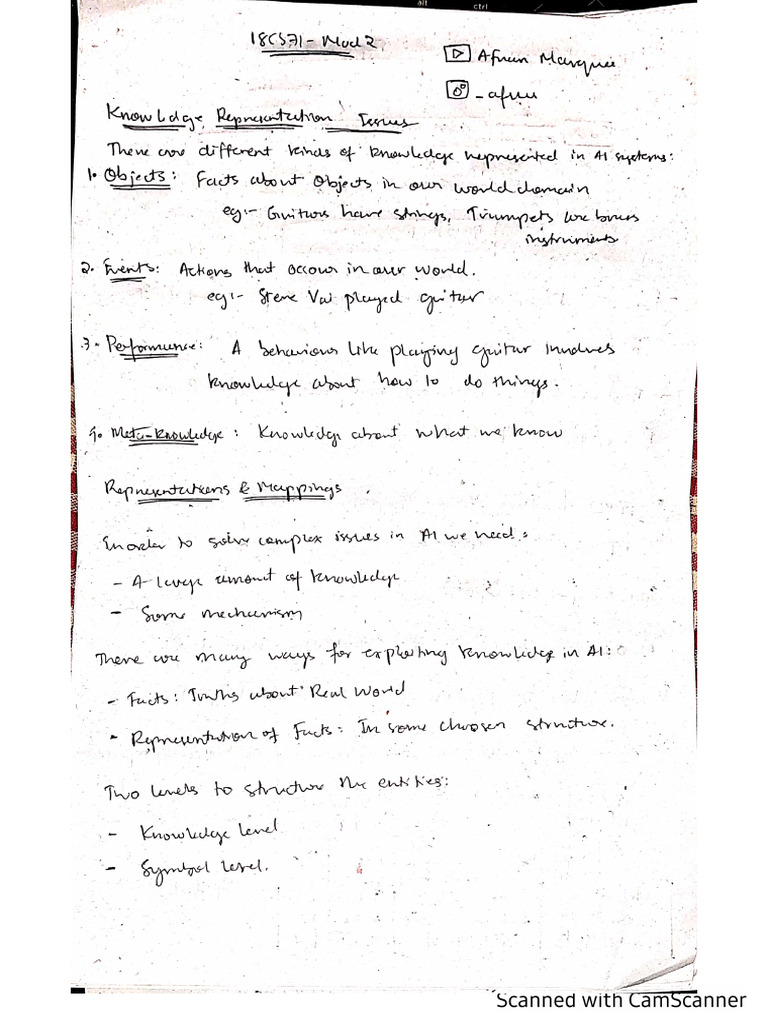 18CS71 - Mod 2
Afnan Marquee
_afnu
Knowledge Representation Issues
There are different kinds of knowledge represented in AI systems:
1. Objects: Facts about Objects in our world domain
eg:- Guitars have strings, Trumpets are brass
instruments
2. Events: Actions that occurs in our world.
eg:- Steve Vai played guitar
3. Performance: A behaviour like playing guitar involves
knowledge about how to do things.
4. Meta-Knowledge: Knowledge about what we know
Representations & Mappings
In order to solve complex issues in AI we need:
- A large amount of knowledge
- Some mechanism
There are many ways for exploiting knowledge in AI:
- Facts: Truths about Real World
- Representation of Facts: In some choosen structure.
Two levels to structure the entities:
- Knowledge level
- Symbol level.
Scanned with CamScanner